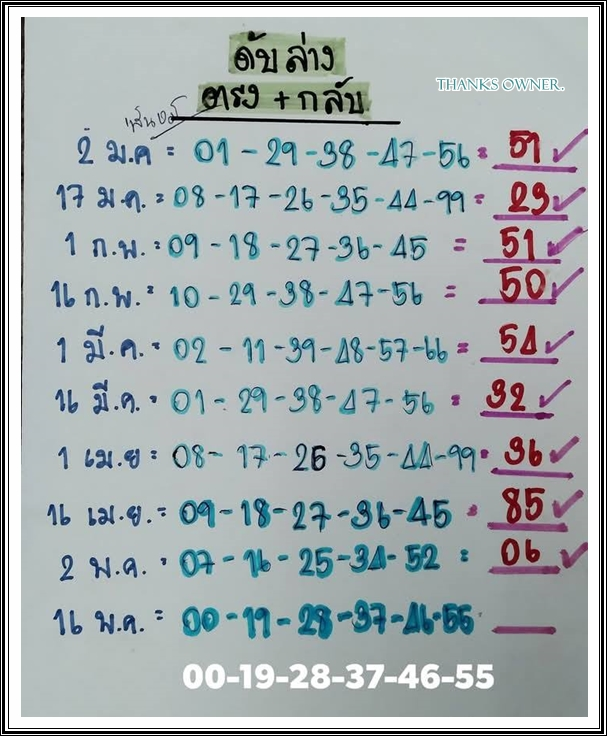 ดับล่าง
ตรง + กลับ
THANKS OWNER.
2 ม.ค = 01 - 29 - 38 - 47 - 56 = 51 ✓
17 ม.ค. = 08 - 17 - 26 - 35 - 44 - 99 = 23 ✓
1 ก.พ. = 09 - 18 - 27 - 36 - 45 = 51 ✓
16 ก.พ. = 10 - 29 - 38 - 47 - 56 = 50 ✓
1 มี.ค. = 02 - 11 - 39 - 48 - 57 - 66 = 54 ✓
16 มี.ค. = 01 - 29 - 38 - 47 - 56 = 32 ✓
1 เม.ย = 08 - 17 - 26 - 35 - 44 - 99 = 36 ✓
16 เม.ย. = 09 - 18 - 27 - 36 - 45 = 85 ✓
2 พ.ค. = 07 - 16 - 25 - 34 - 52 = 06 ✓
16 พ.ค. = 00 - 19 - 28 - 37 - 46 - 55
00-19-28-37-46-55